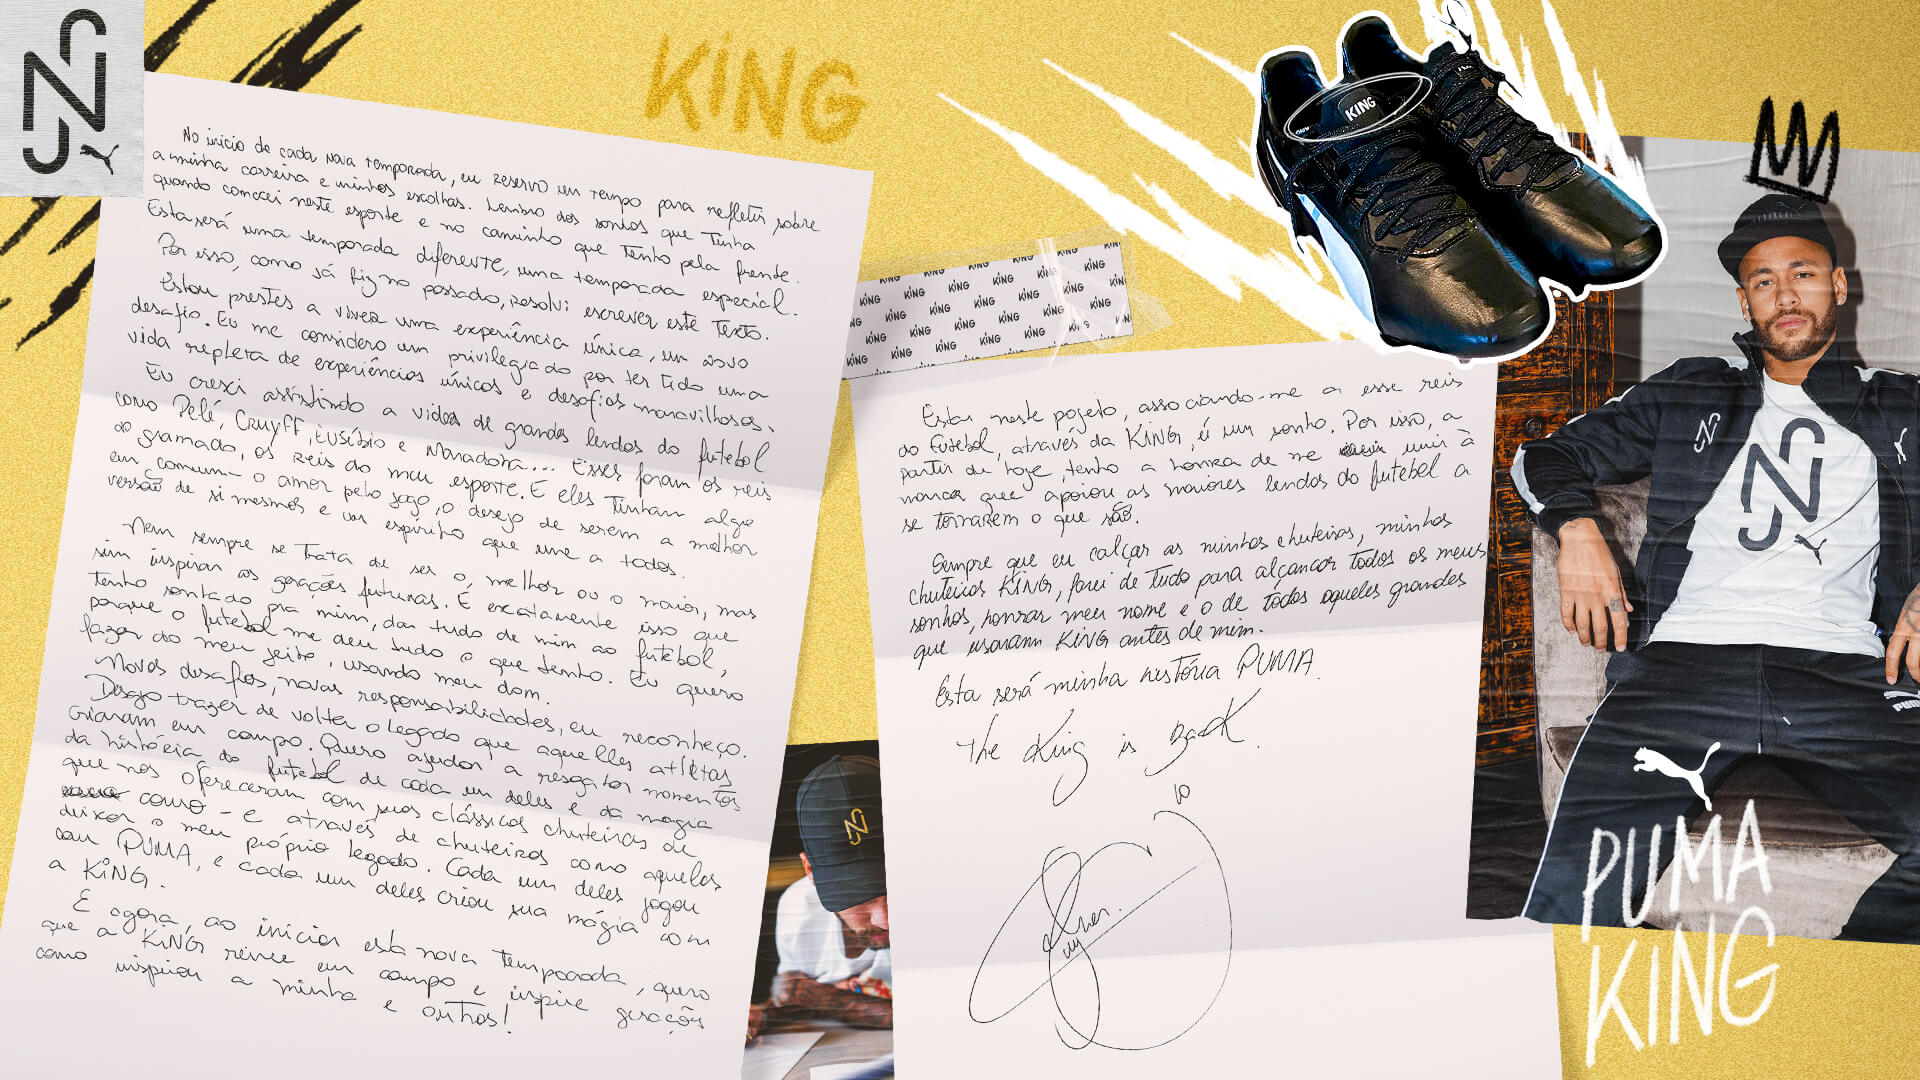 NJR
KING
No início de cada nova temporada, eu reservo um tempo para refletir sobre
a minha carreira e minhas escolhas. Lembro dos sonhos que tinha
quando comecei neste esporte e no caminho que tenho pela frente.
Esta será uma temporada diferente, uma temporada especial.
Por isso, como já fiz no passado, resolvi escrever este texto.
Estou prestes a viver uma experiência única, um novo
desafio. Eu me considero um privilegiado por ter tido uma
vida repleta de experiências únicas e desafios maravilhosos.
Eu cresci assistindo a videos de grandes lendas do futebol
como Pelé, Cruyff, Eusébio e Maradona... Esses foram os reis
do gramado, os reis do meu esporte. E eles tinham algo
em comum - o amor pelo jogo, o desejo de serem a melhor
versão de si mesmos e um espírito que une a todos.
Nem sempre se trata de ser o melhor ou o maior, mas
sim inspirar as gerações futuras. É exatamente isso que
tenho sonhado pra mim, dar tudo de mim ao futebol,
porque o futebol me deu tudo o que tenho. Eu quero
fazer do meu jeito, usando meu dom.
Novos desafios, novas responsabilidades, eu reconheço.
Desejo trazer de volta o legado que aquelles atlétas
criaram em campo. Quero ajudar a resgatar momentos
da história do futebol de cada um deles e da magia
que nos ofereceram com suas clássicas chuteiras de
couro - e através de chuteiras como aquelas
deixar o meu próprio legado. Cada um deles jogou
com PUMA, e cada um deles criou sua mágia com
a KING.
E agora, ao iniciar esta nova temporada, quero
que a KING reine em campo e inspire gerações
como inspirou a minha e outras!
KING KING KING KING KING
KING
Estar neste pojeto, associando-me a esse reis
do futebol, através da KING, é um sonho. Por isso, a
partir de hoje, tenho a honra de me unir à
marca que apoiou as maiores lendas do futebol a
se tornarem o que são.
Sempre que eu calçar as minhas chuteiras, minhas
chuteiras KING, farei de tudo para alcançar todos os meus
sonhos, honrar meu nome e o de todos aqueles grandes
que usaram KING antes de mim.
Esta será minha história PUMA.
The King is Back.
10
PUMA
KING